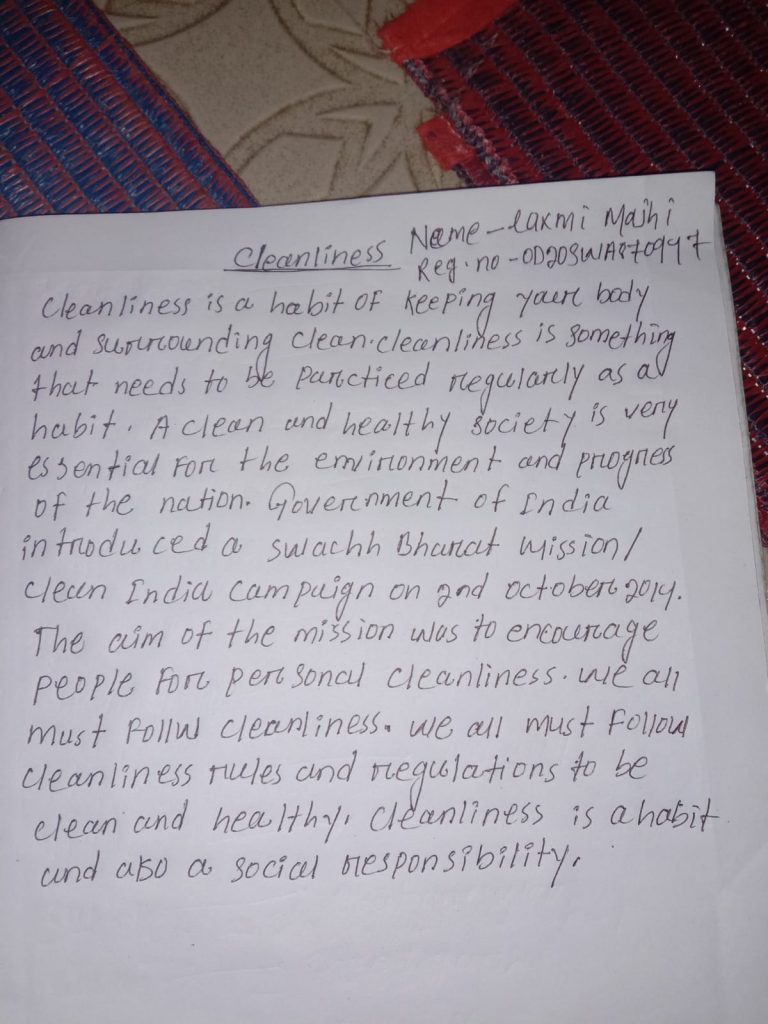 Cleanliness Name - Laxmi Majhi
Reg. no - OD20SWA870997
Cleanliness is a habit of keeping your body
and surrounding clean. cleanliness is something
that needs to be parcticed regularly as a
habit. A clean and healthy society is very
essential for the environment and progress
of the nation. Government of India
introduced a swachh Bharat Mission/
clean India campaign on 2nd october 2014.
The aim of the mission was to encourage
people for personal cleanliness. we all
must follw cleanliness. we all must follow
cleanliness rules and regulations to be
clean and healthy. cleanliness is a habit
and also a social responsibility.